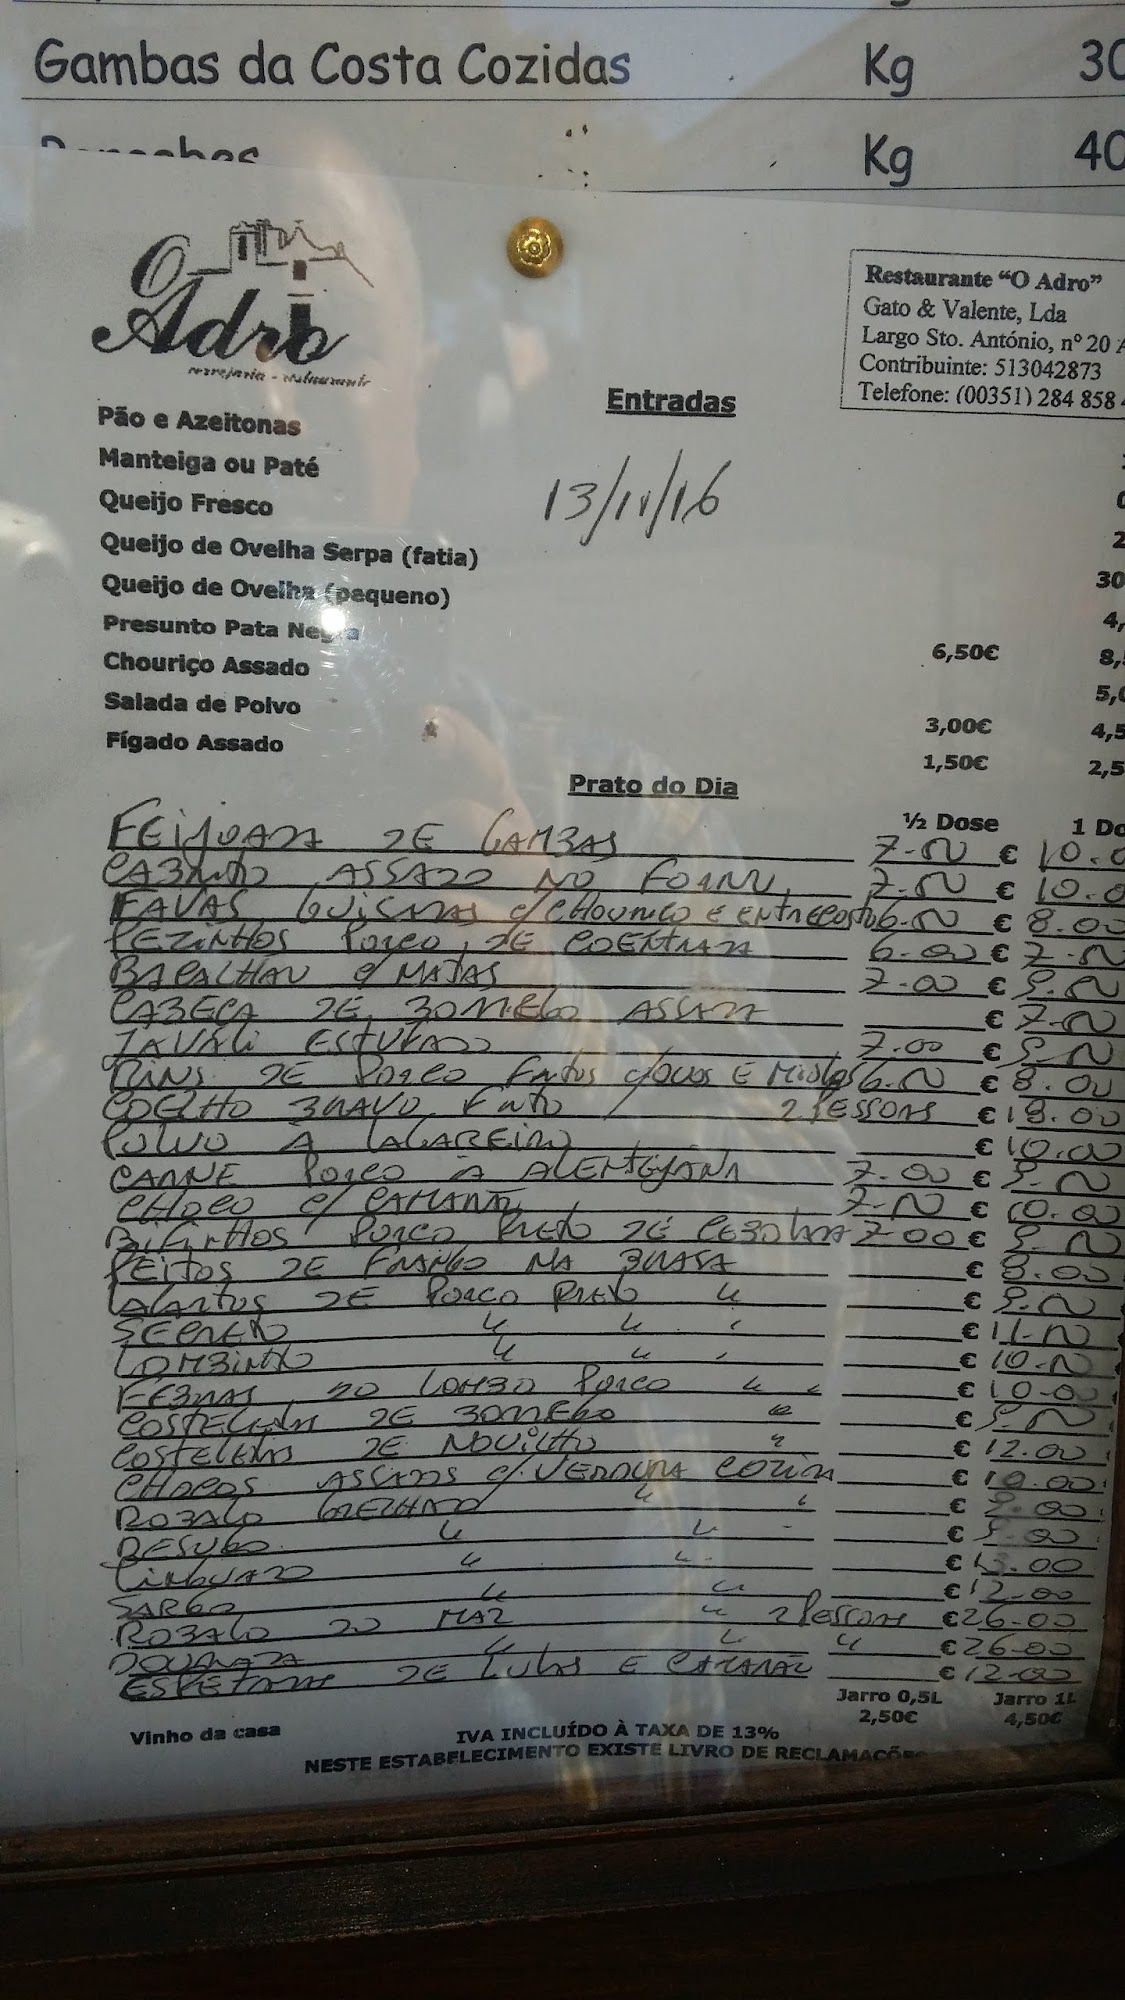 Gambas da Costa Cozidas Kg 30
Kg 40
O Adro
Restaurante “O Adro”
Gato & Valente, Lda
Largo Sto. António, nº 20 A
Contribuinte: 513042873
Telefone: (00351) 284 858
Entradas
13/11/16
Pão e Azeitonas
Manteiga ou Paté
Queijo Fresco 2
Queijo de Ovelha Serpa (fatia) 30
Queijo de Ovelha (pequeno) 4,
Presunto Pata Negra 6,50€ 8,
Chouriço Assado 5,0
Salada de Polvo 3,00€ 4,5
Fígado Assado 1,50€ 2,5
Prato do Dia
½ Dose 1 Do
FEIJOADA DE GAMBAS 7.50 € 10.0
CABRITO ASSADO NO FORNO 7.50 € 10.0
FAVAS GUISADAS C/CHOURIÇO E ENTRECOSTO 6.50 € 8.00
PEZINHOS PORCO DE COENTRADA 6.00 € 7.50
BACALHAU C/ NATAS 7.00 € 9.50
CABEÇA DE BORREGO ASSADA € 7.50
JAVALI ESTUFADO 7.00 € 9.50
RINS DE PORCO FRITOS C/OVOS E MIOLOS 6.50 € 8.00
COELHO BRAVO FRITO 2 PESSOAS € 18.00
POLVO À LAGAREIRO € 10.00
CARNE PORCO À ALENTEJANA 7.00 € 9.50
CHOCO C/ CAMARÃO 7.50 € 10.00
BIFINHOS PORCO PRETO DE CEBOLADA 7.00 € 9.50
PEITOS DE FRANGO NA BRASA € 8.00
LAGARTOS DE PORCO PRETO " € 9.50
SECRETO " " " € 11.50
LOMBINHO " " " € 10.50
FEBRAS DO LOMBO PORCO " " € 10.00
COSTELETAS DE BORREGO " € 9.50
COSTELETAS DE NOVILHO " € 12.00
CHOCOS ASSADOS C/ VERDURA COZIDA € 10.00
ROBALO GRELHADO " " € 9.00
BESUGO " " € 9.00
LINGUADO " " € 13.00
SARGO " " € 12.00
ROBALO DO MAR " 2 PESSOAS € 26.00
DOURADA " " " € 26.00
ESPETADA DE LULAS E CAMARÃO € 12.00
Jarro 0,5L Jarro 1L
Vinho da casa 2,50€ 4,50€
IVA INCLUÍDO À TAXA DE 13%
NESTE ESTABELECIMENTO EXISTE LIVRO DE RECLAMAÇÕES